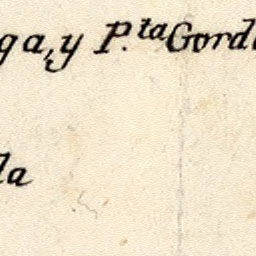 ga, y P.ta Gord
la